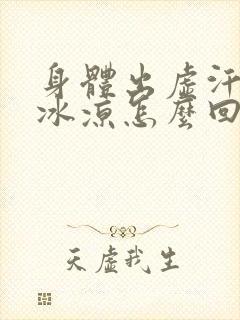 身體出虛汗
冰涼怎麼回
天虛我生